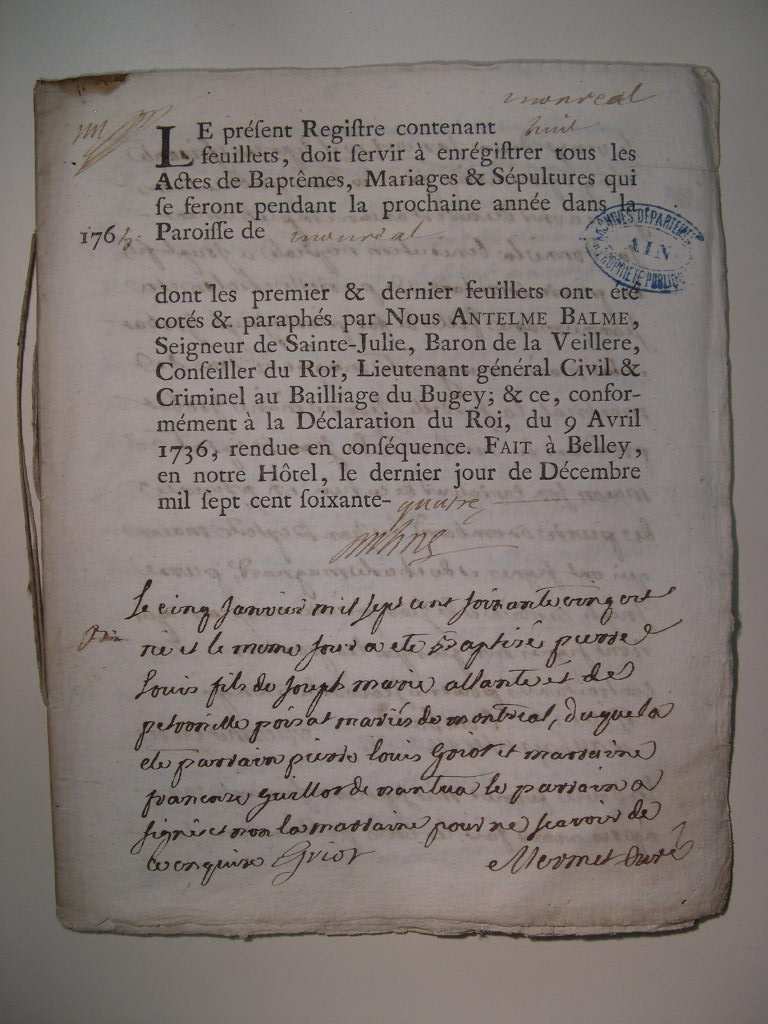 monreal
LE préſent Regiſtre contenant huit
feuillets, doit ſervir à enrégiſtrer tous les
Actes de Baptêmes, Mariages & Sépultures qui
ſe feront pendant la prochaine année dans la
1765. Paroiſſe de monréal
ARCHIVES DÉPARTEMENTALES
AIN
PROPRIÉTÉ PUBLIQUE
dont les premier & dernier feuillets ont été
cotés & paraphés par Nous ANTELME BALME,
Seigneur de Sainte-Julie, Baron de la Veillere,
Conſeiller du Roi, Lieutenant général Civil &
Criminel au Bailliage du Bugey; & ce, confor-
mément à la Déclaration du Roi, du 9 Avril
1736, rendue en conſéquence. FAIT à Belley,
en notre Hôtel, le dernier jour de Décembre
mil ſept cent ſoixante-quatre
Le cinq Janvier mil sept cent soixante cinq est
né et le meme jour a eté Baptisé pierre
Louis fils de joseph marie allante et de
petronille poisat mariés de montreal, duquel a
ete parrain pierre louis Griot et marraine
francoise Guillot de nantua le parrain a
signé et non la marraine pour ne scavoir de
ce enquise Griot Mermet Curé